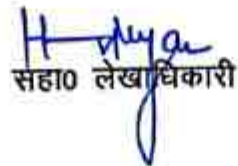 सहा0 लेखाधिकारी